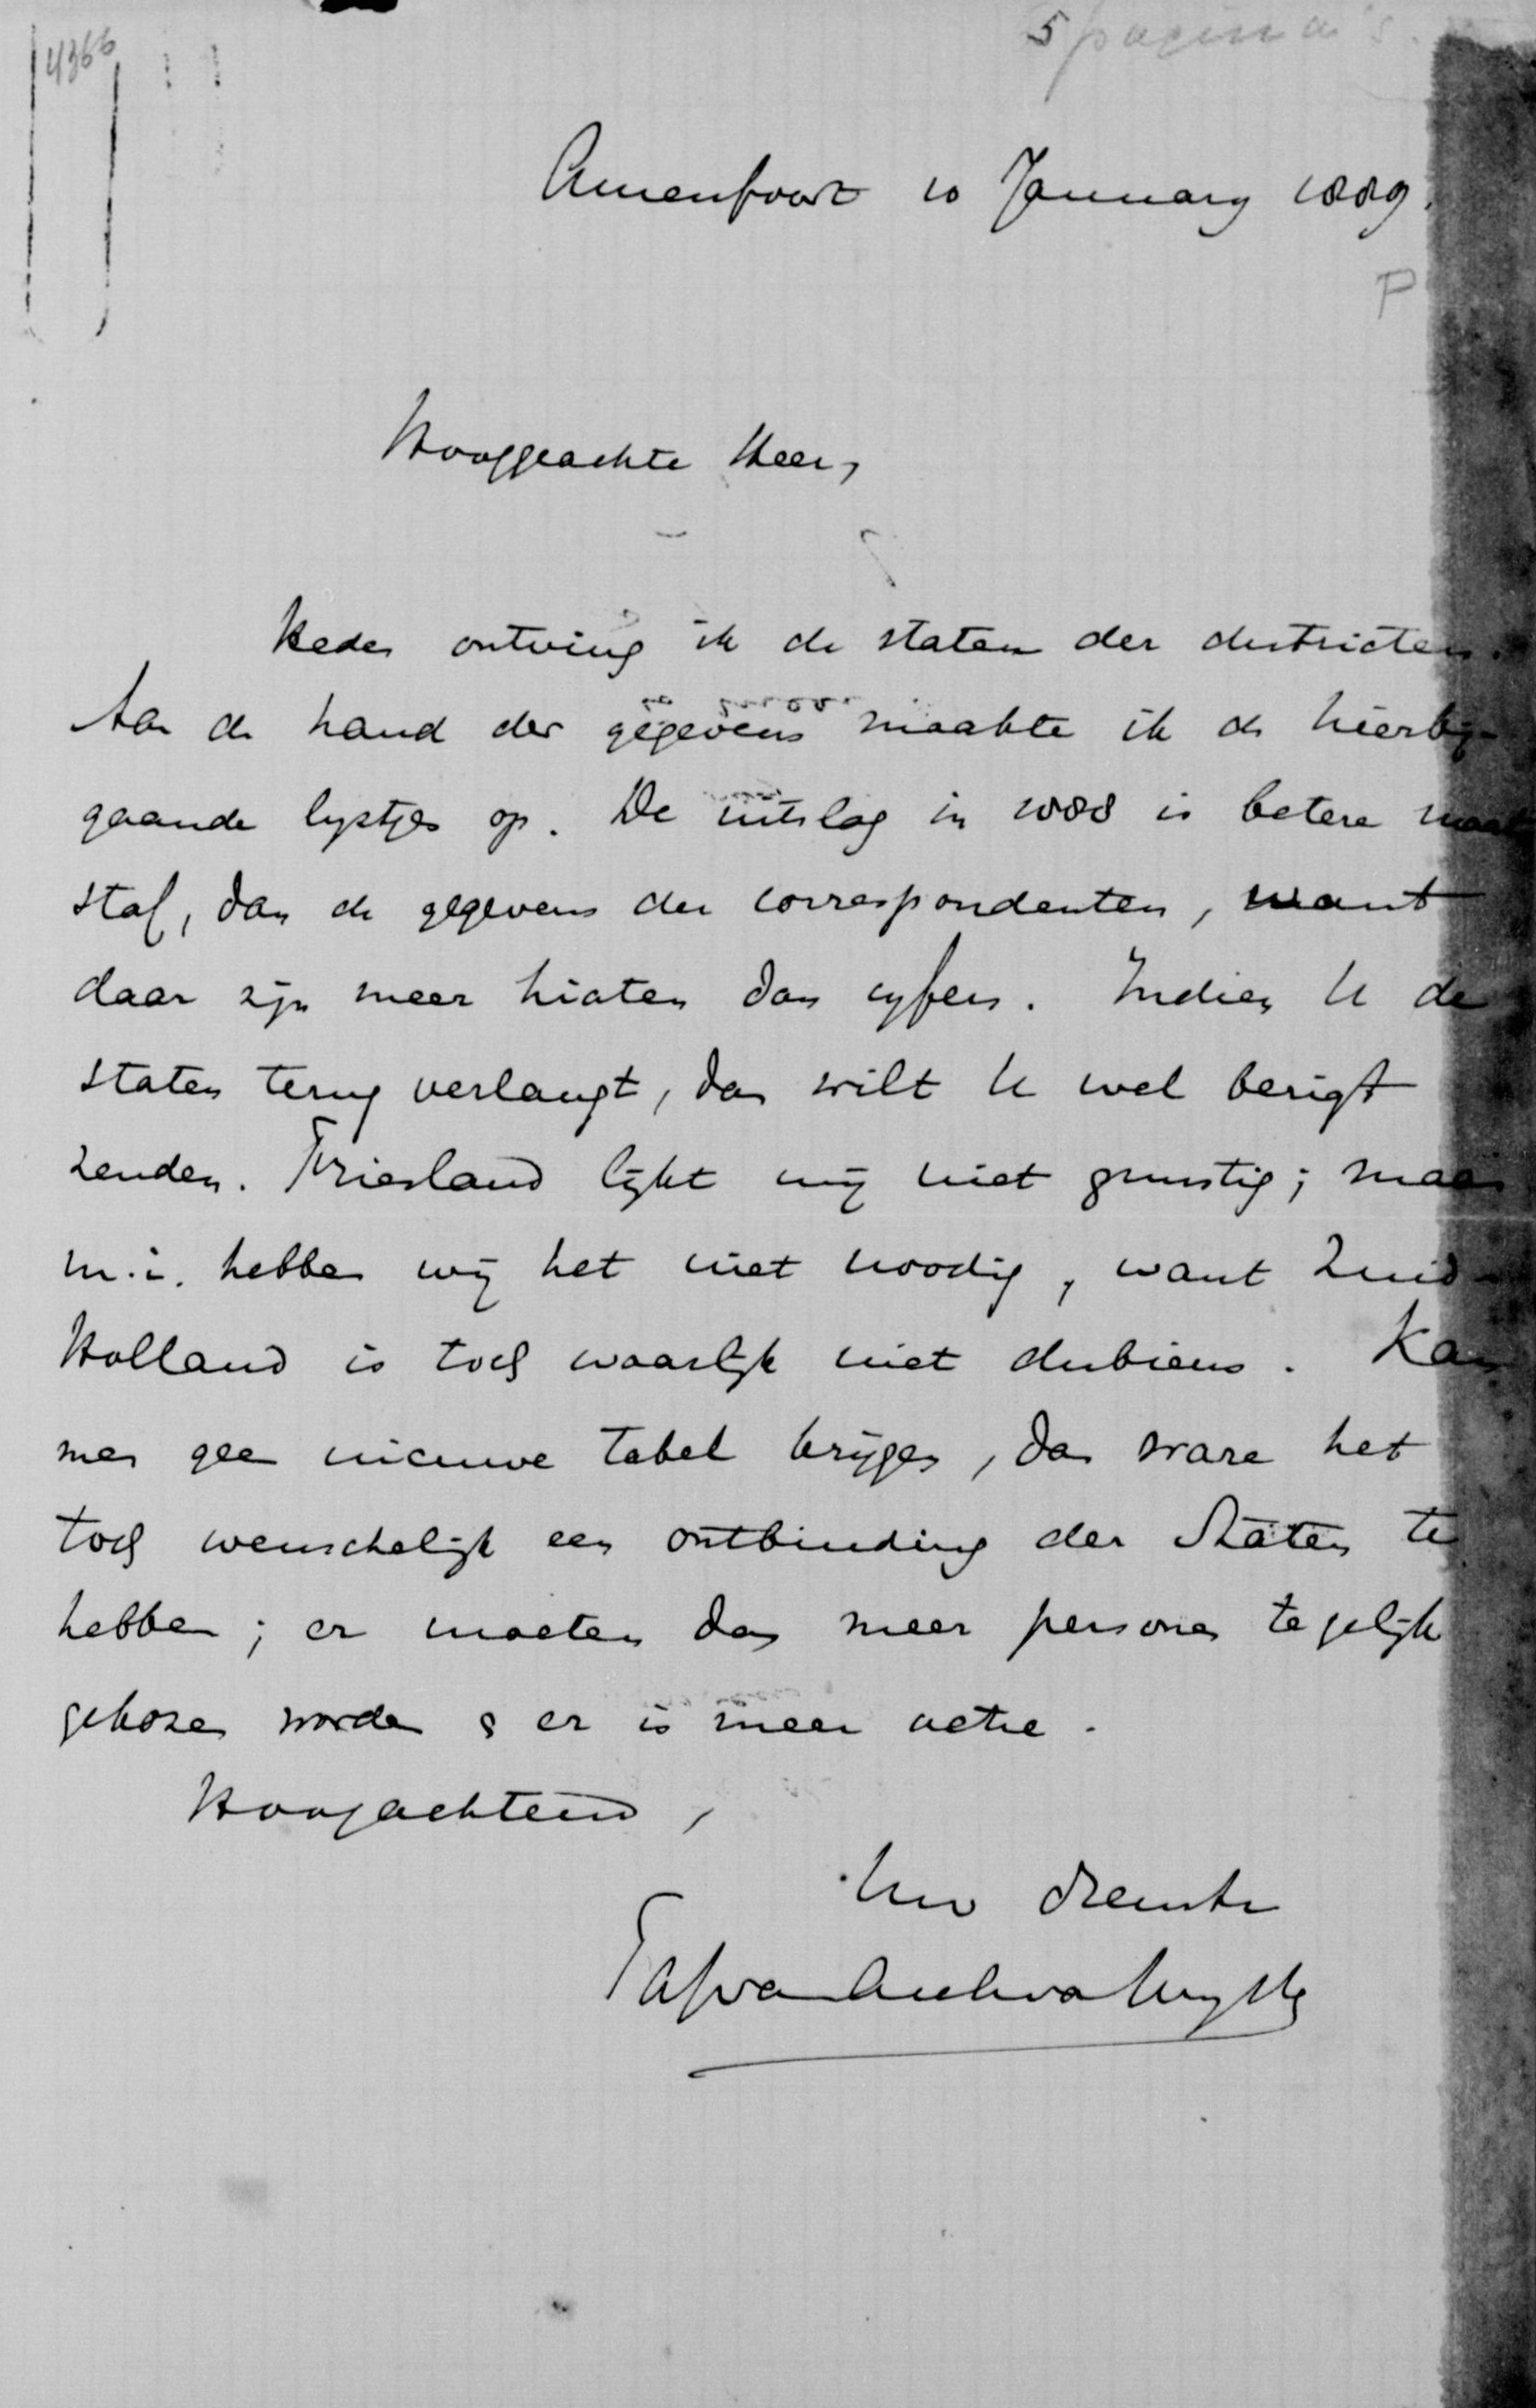 4366
5 pagina's.
Amersfoort 10 January 1889.
P
Hooggeachte Heer,
Heden ontving ik de staten der districten.
Aan de hand der gegevens maakte ik de hierby-
gaande lystjes op. De uitslag in 1888 is betere maat
staf, dan de gegevens der correspondenten, want
daar zijn meer hiaten dan cyfers. Indien U de
staten terug verlangt, dan wilt U wel berigt
zenden. Friesland lijkt mij niet gunstig; maar
m.i. hebben wij het niet noodig, want Zuid-
Holland is toch waarlijk niet dubieus. Kan
men geen nieuwe tabel krijgen, dan ware het
toch wenschelijk een ontbinding der Staten te
hebben; er moeten dan meer personen te gelijk
gekozen worden & er is meer actie.
Hoogachtend,
Uw dienstv